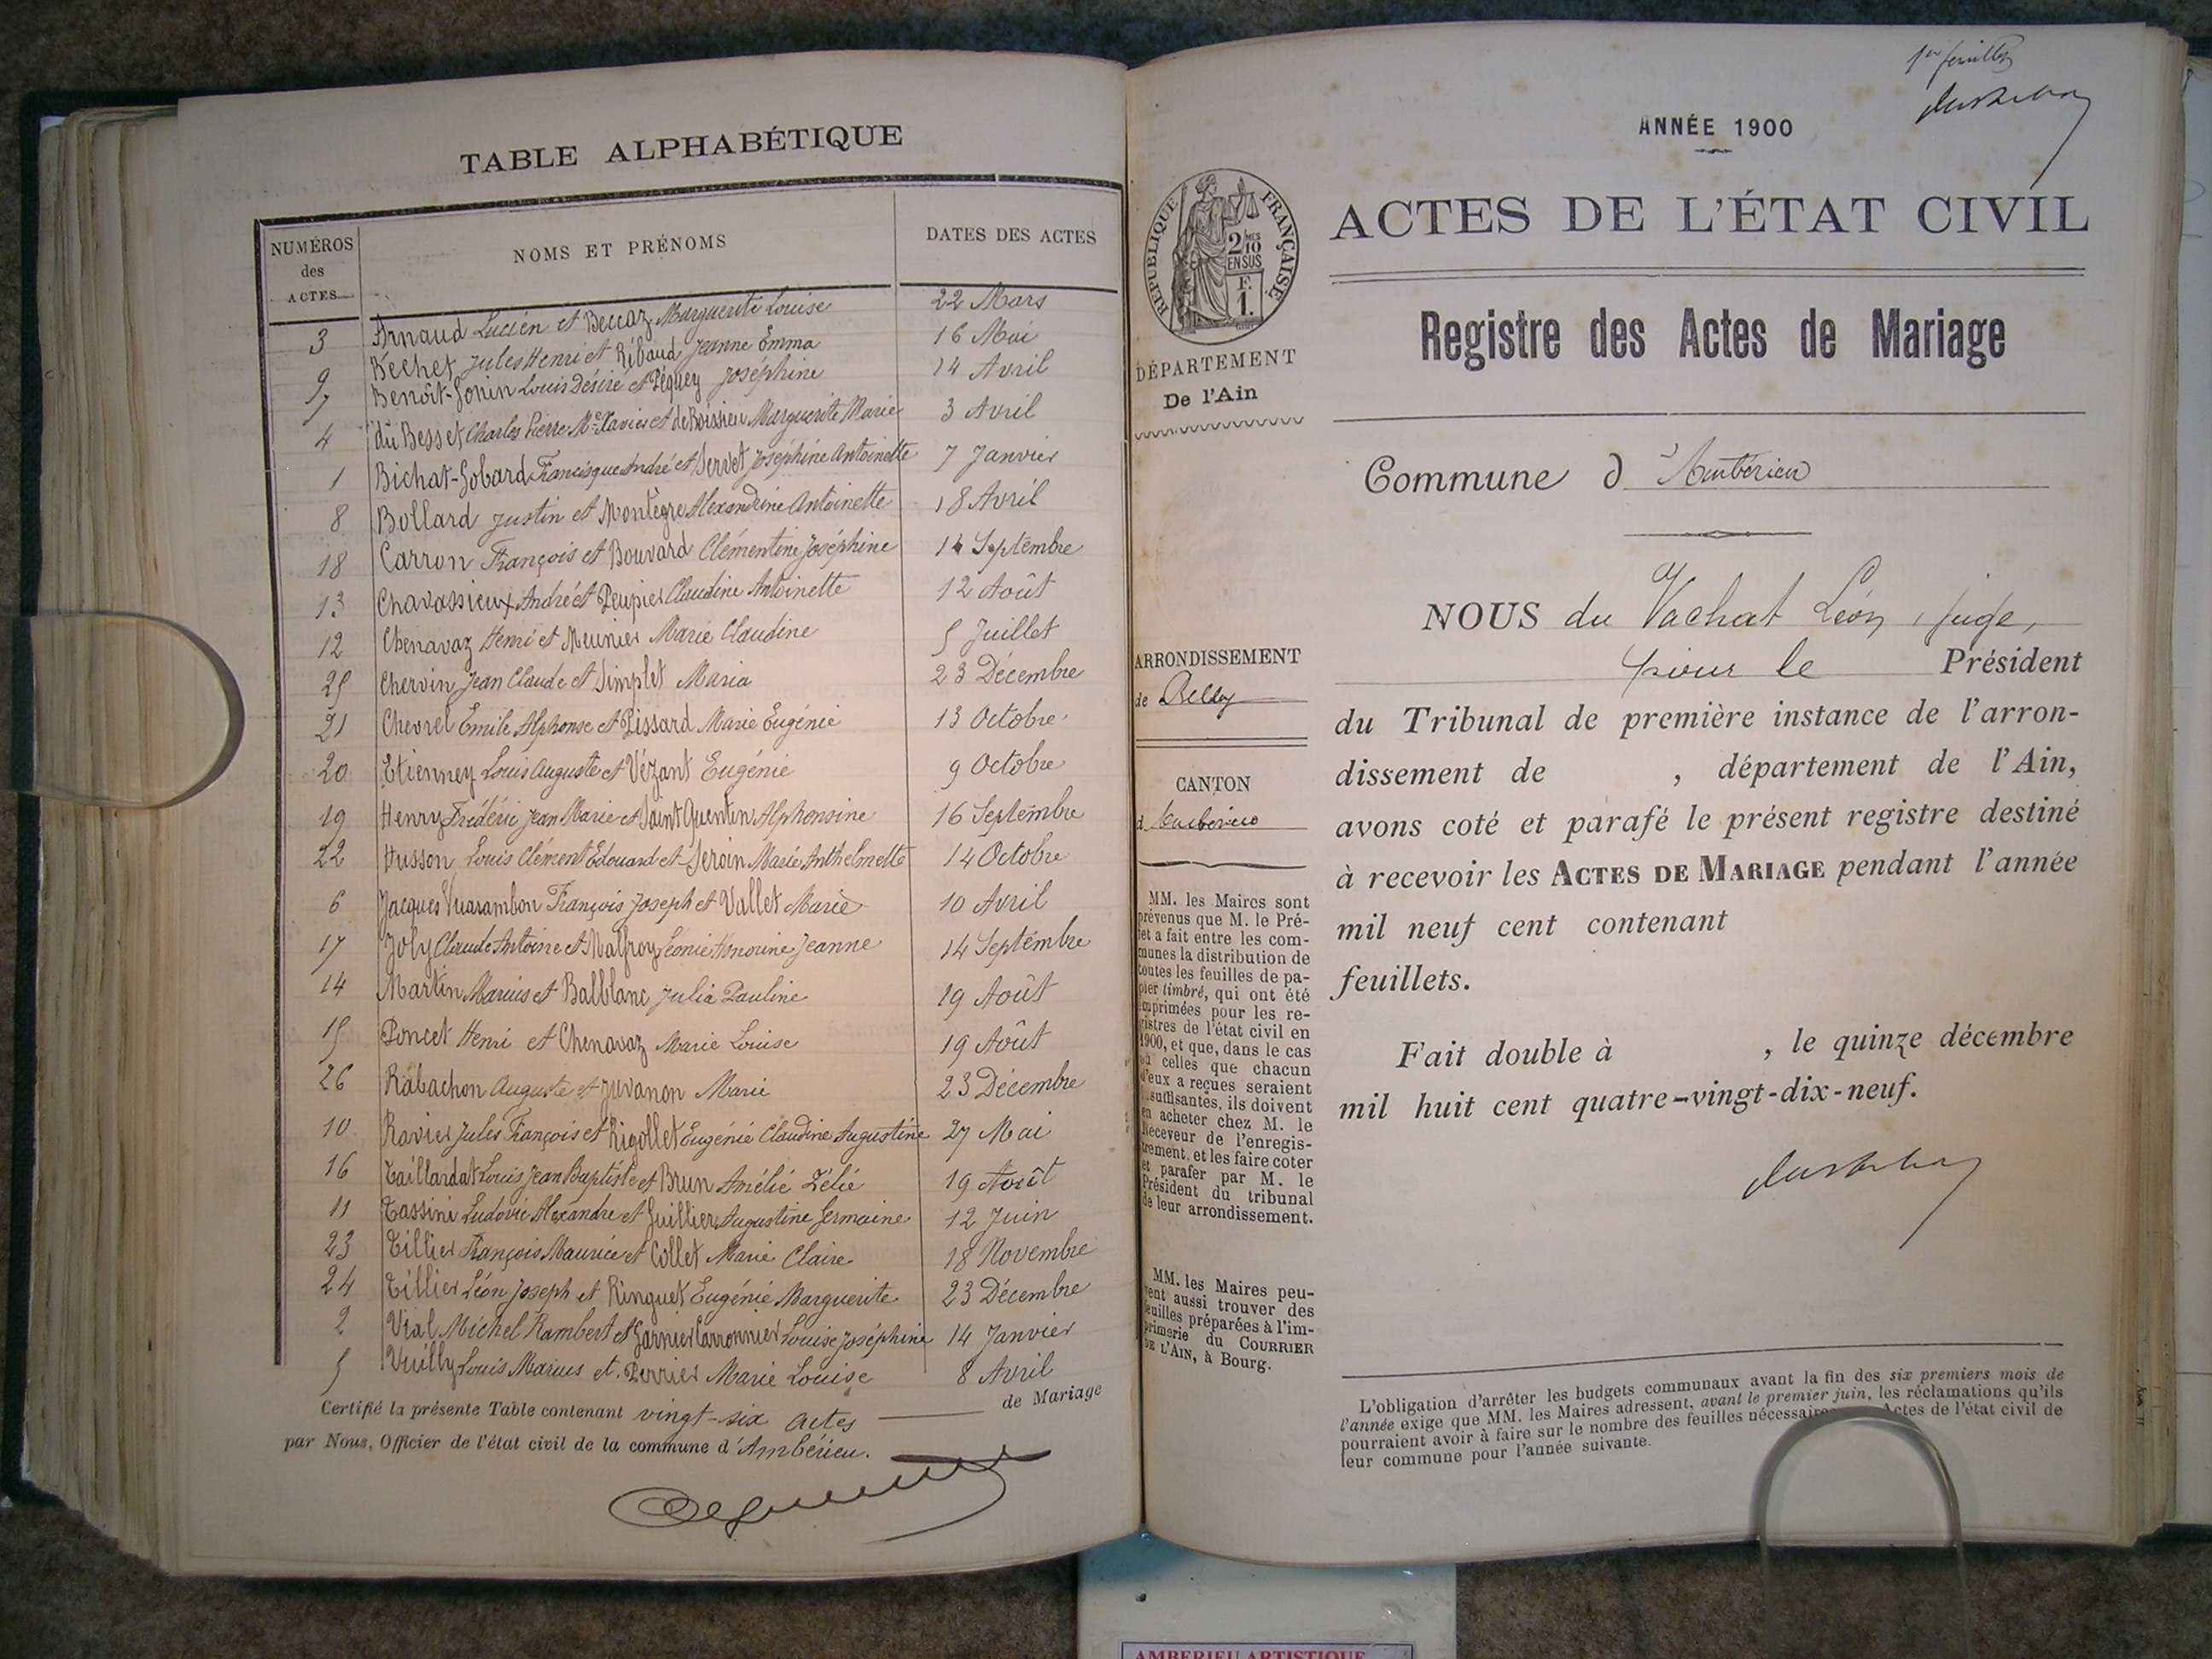 TABLE ALPHABÉTIQUE
NUMÉROS des ACTES
NOMS ET PRÉNOMS
DATES DES ACTES
3 Arnaud Lucien et Beccaz Marguerite Louise 22 Mars
9 Béchet Jules Henri et Ribaud Jeanne Emma 16 Mai
7 Benoît-Gonin Louis Désiré et Péguey Joséphine 14 Avril
4 du Besset Charles Pierre Mie Xavier et de Boissieu Marguerite Marie 3 Avril
1 Bichat-Gobard Francisque André et Servet Joséphine Antoinette 7 Janvier
8 Bollard Justin et Montègre Alexandrine Antoinette 18 Avril
18 Carron François et Bouvard Clémentine Joséphine 14 Septembre
13 Chavassieux André et Peupier Claudine Antoinette 12 Août
12 Chenavaz Henri et Meunier Marie Claudine 5 Juillet
25 Chervin Jean Claude et Simplet Maria 23 Décembre
21 Chevrel Emile Alphonse et Pissard Marie Eugénie 13 Octobre
20 Etienney Louis Auguste et Vézant Eugénie 9 Octobre
19 Henry Frédéric Jean Marie et Saint Quentin Alphonsine 16 Septembre
22 Husson Louis Clément Edouard et Seroin Marie Anthelmette 14 Octobre
6 Jacques Vuarambon François Joseph et Vallet Marie 10 Avril
17 Joly Claude Antoine et Malfroy Léonie Honorine Jeanne 14 Septembre
14 Martin Marius et Balblanc Julia Pauline 19 Août
15 Poncet Henri et Chenavaz Marie Louise 19 Août
26 Rabachon Auguste et Juvanon Marie 23 Décembre
10 Ravier Jules François et Rigollet Eugénie Claudine Augustine 27 Mai
16 Taillardat Louis Jean Baptiste et Brun Amélie Zélie 19 Août
11 Tassini Ludovic Alexandre et Guillier Augustine Germaine 12 Juin
23 Tillier François Maurice et Collet Marie Claire 18 Novembre
24 Tillier Léon Joseph et Ringuet Eugénie Marguerite 23 Décembre
2 Vial Michel Rambert et Garnier Carronnier Louise Joséphine 14 Janvier
5 Vuilly Louis Marius et Perrier Marie Louise 8 Avril
Certifié la présente Table contenant vingt-six actes de Mariage
par Nous, Officier de l'état civil de la commune d'Ambérieu.
1er feuillet
ANNÉE 1900
RÉPUBLIQUE FRANÇAISE
2/10 MES
EN SUS
F.
1.
ACTES DE L'ÉTAT CIVIL
Registre des Actes de Mariage
DÉPARTEMENT
De l'Ain
Commune d'Ambérieu
ARRONDISSEMENT
de Belley
CANTON
d'Ambérieu
MM. les Maires sont
prévenus que M. le Pré-
fet a fait entre les com-
munes la distribution de
toutes les feuilles de pa-
pier timbré, qui ont été
imprimées pour les re-
gistres de l'état civil en
1900, et que, dans le cas
où celles que chacun
d'eux a reçues seraient
insuffisantes, ils doivent
en acheter chez M. le
Receveur de l'enregis-
trement, et les faire coter
et parafer par M. le
Président du tribunal
de leur arrondissement.
MM. les Maires peu-
vent aussi trouver des
feuilles préparées à l'im-
primerie du COURRIER
DE L'AIN, à Bourg.
NOUS du Vachat Léon, juge,
pour le Président
du Tribunal de première instance de l'arron-
dissement de , département de l'Ain,
avons coté et parafé le présent registre destiné
à recevoir les ACTES DE MARIAGE pendant l'année
mil neuf cent contenant
feuillets.
Fait double à , le quinze décembre
mil huit cent quatre-vingt-dix-neuf.
L'obligation d'arrêter les budgets communaux avant la fin des six premiers mois de
l'année exige que MM. les Maires adressent, avant le premier juin, les réclamations qu'ils
pourraient avoir à faire sur le nombre des feuilles nécessaires Actes de l'état civil de
leur commune pour l'année suivante.
AMBERIEU ARTISTIQUE